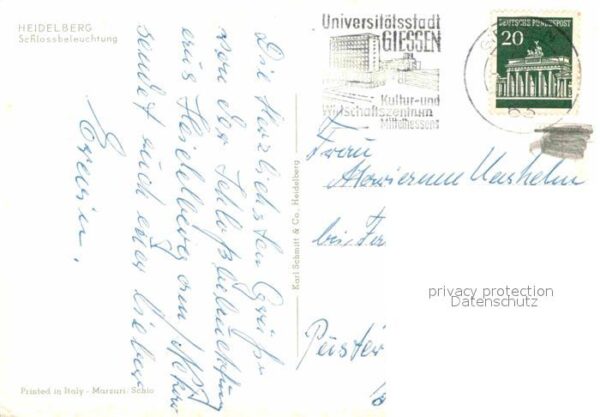 HEIDELBERG
Schlossbeleuchtung
Die herzlichsten Grüße
von der Schloßbeleuchtung
aus Heidelberg am Neckar
sendet euch euer lieber
Erwin.
Printed in Italy - Marzari/Schio
Karl Schmitt & Co., Heidelberg
Universitätsstadt
GIESSEN
Kultur-und
Wirtschaftszentrum
Mittelhessens
DEUTSCHE BUNDESPOST
20
63
Frau
bei Fr
privacy protection
Datenschutz